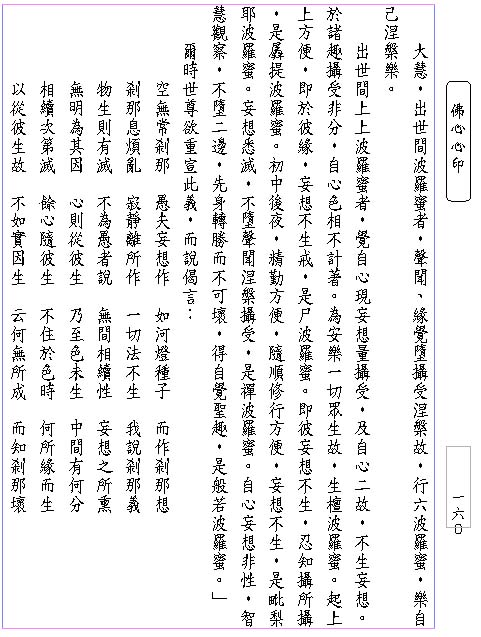 佛心心印
一六〇
大慧，出世間波羅蜜者，聲聞、緣覺墮攝受涅槃故，行六波羅蜜，樂自
己涅槃樂。
出世間上上波羅蜜者，覺自心現妄想量攝受，及自心二故，不生妄想。
於諸趣攝受非分，自心色相不計著。為安樂一切眾生故，生檀波羅蜜。起上
上方便，即於彼緣，妄想不生戒，是尸波羅蜜。即彼妄想不生，忍知攝所攝
，是羼提波羅蜜。初中後夜，精勤方便，隨順修行方便，妄想不生，是毗梨
耶波羅蜜。妄想悉滅，不墮聲聞涅槃攝受，是禪波羅蜜。自心妄想非性，智
慧觀察，不墮二邊，先身轉勝而不可壞，得自覺聖趣，是般若波羅蜜。」
爾時世尊欲重宣此義，而說偈言：
空無常剎那　愚夫妄想作　如河燈種子　而作剎那想
剎那息煩亂　寂靜離所作　一切法不生　我說剎那義
物生則有滅　不為愚者說　無間相續性　妄想之所熏
無明為其因　心則從彼生　乃至色未生　中間有何分
相續次第滅　餘心隨彼生　不住於色時　何所緣而生
以從彼生故　不如實因生　云何無所成　而知剎那壞